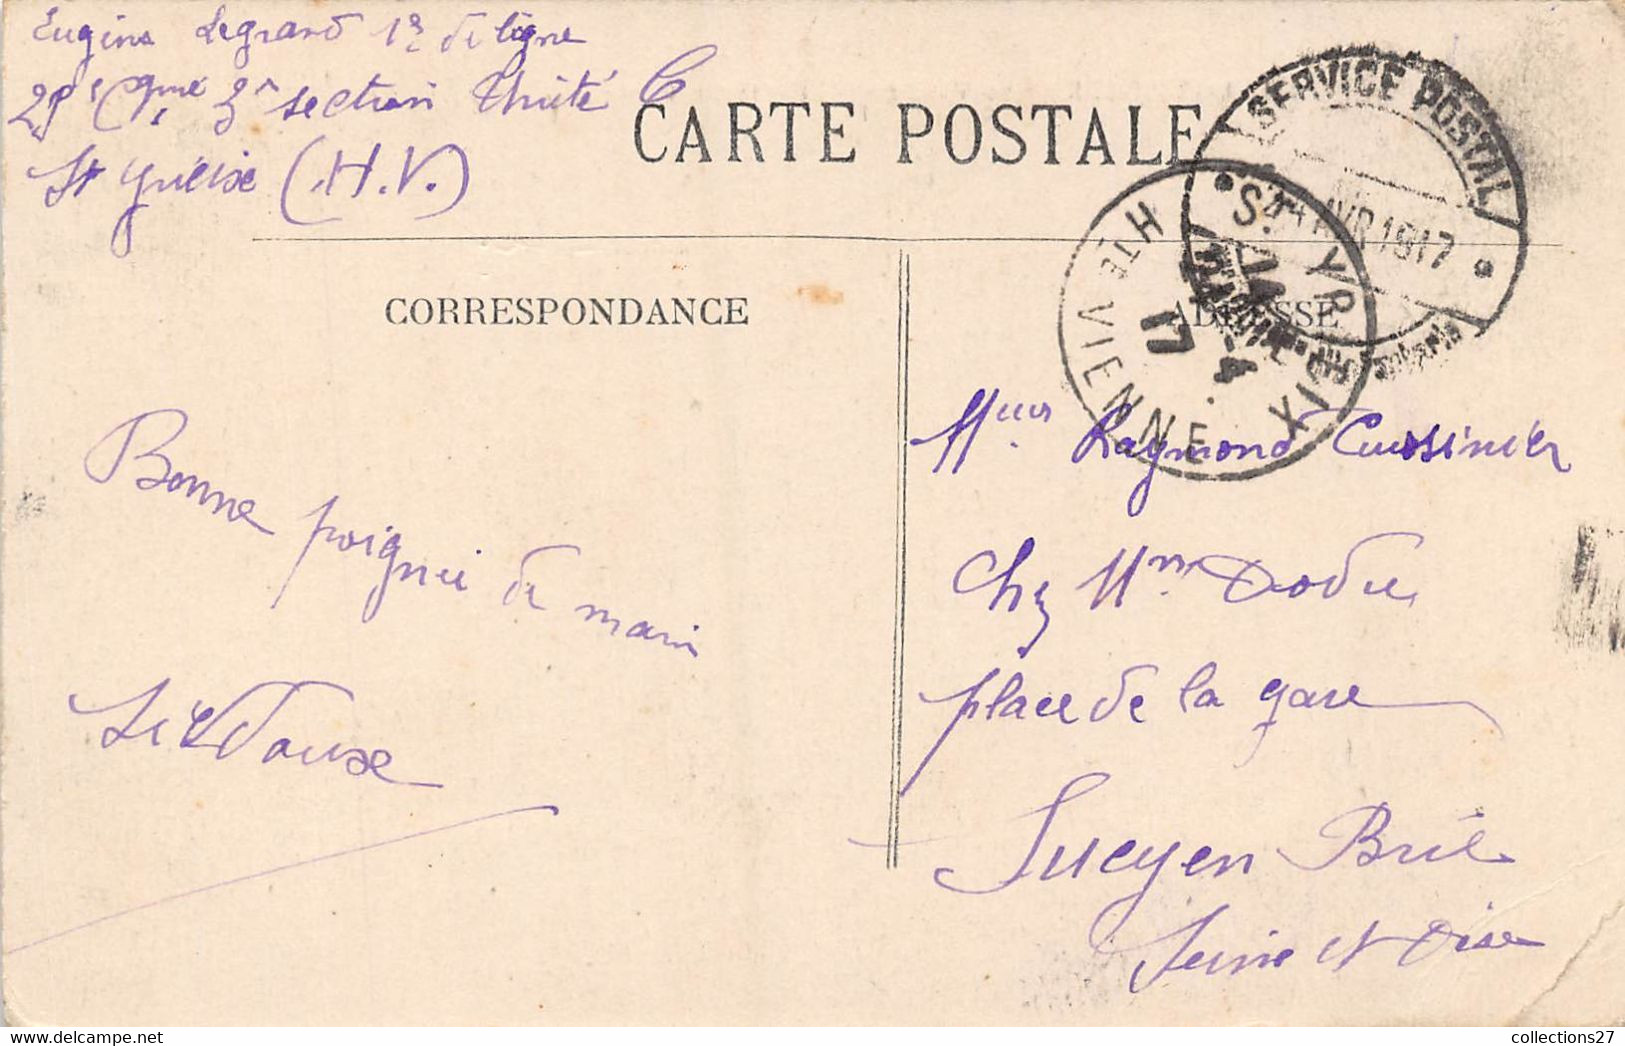 Eugène Legrand 12 de ligne
28e Cgnie 3e section Unité C
St Yrieix (H.V.)
CARTE POSTALE
SERVICE POSTAL
24 AVR 1917
ST YRIEIX
HTE VIENNE
17
CORRESPONDANCE
ADRESSE
Bonne poignée de main
Raymond Cuissinier
Chez Mme Dodu
place de la gare
Sucy en Brie
Seine et Oise
collections27